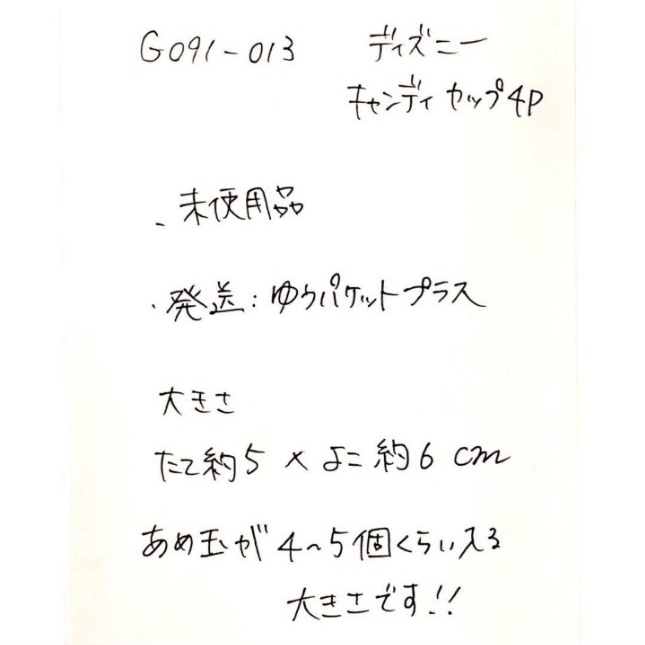 G091-013 ディズニー
キャンディカップ4P
・未使用品
・発送：ゆうパケットプラス
大きさ
たて約5×よこ約6cm
あめ玉が4～5個くらい入る
大きさです!!